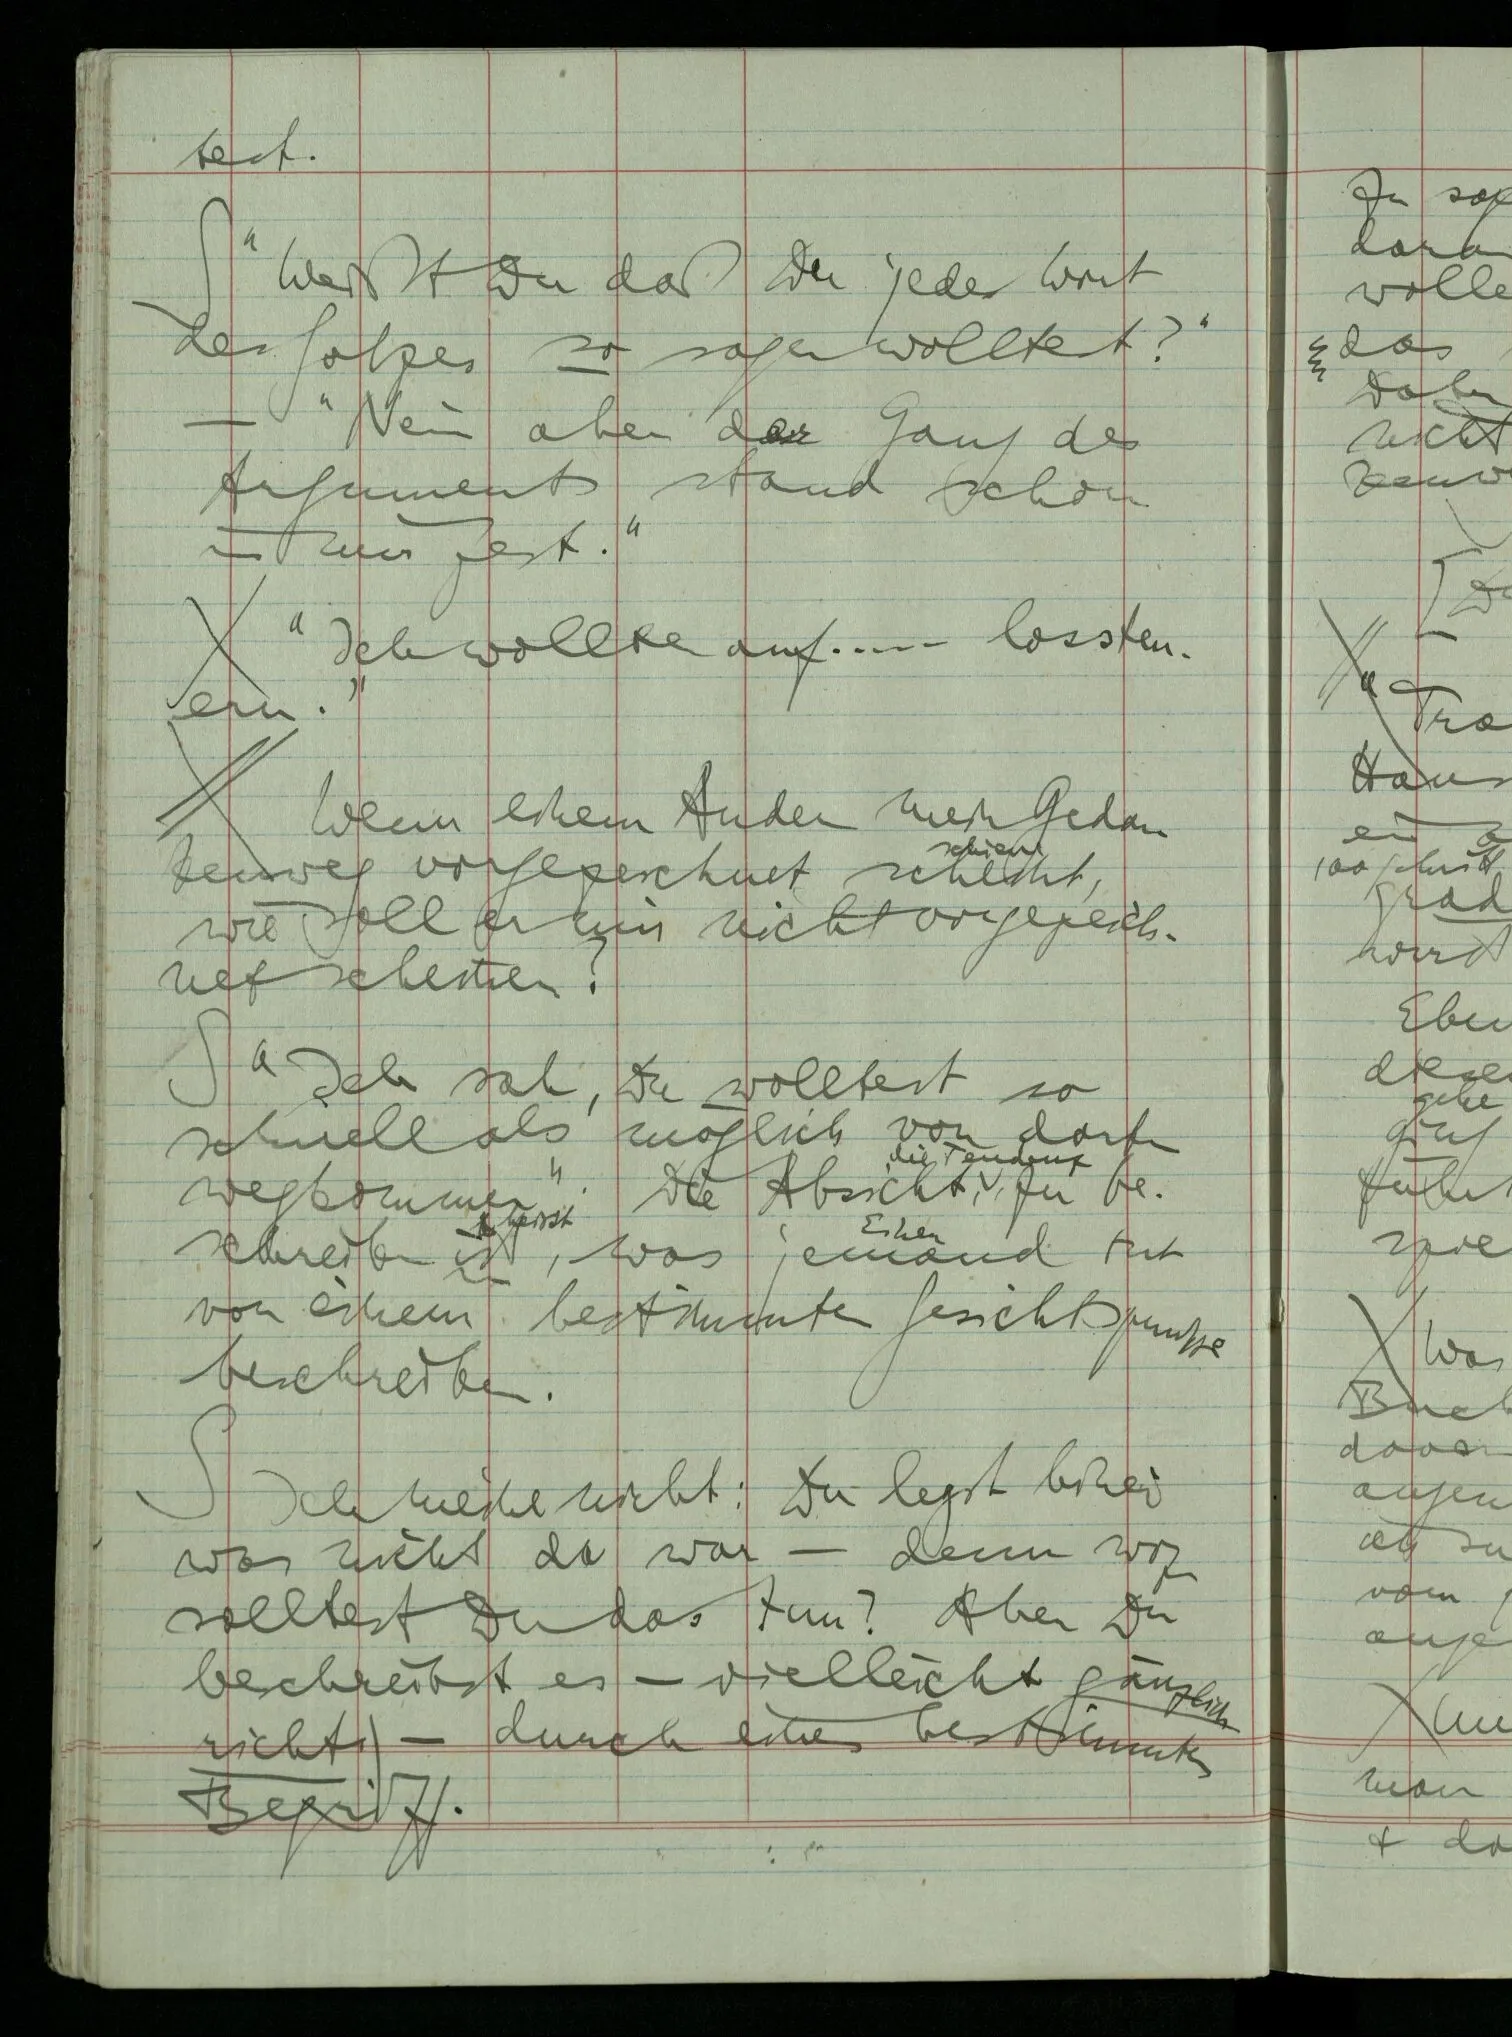 test.
"Weißt Du daß Du jedes Wort
des Satzes so sagen wolltest?"
— "Nein aber der Gang des
Arguments stand schon
in mir fest."
"Ich wollte auf..... lossteu-
ern."
Wenn einem Andern mein Gedan
kenweg vorgezeichnet scheint, schien
wie soll er mir nicht vorgezeich-
net scheinen?
S "Ich sah, Du wolltest so
schnell als möglich von dort
wegkommen". Die Absicht, die Tendenz, zu be-
schreiben ist heisst, was jemand Einen tut
von einem bestimmten Gesichtspunkte
beschreiben.
S Ich meine nicht: Du legst hinein
was nicht da war — denn wozu
solltest Du das tun? Aber Du
beschreibst es — vielleicht gänzlich
richtig — durch einen bestimmten
Begriff.
Zu
wolle
das
nicht
"
Haus
100
grad
wirst
Eben
gehe
ging
Was
Buch
vom
man
+ da